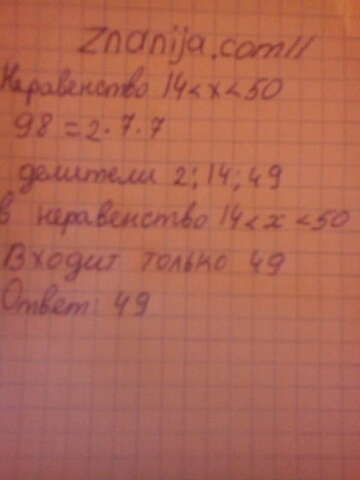 Znanija.com//
Неравенство 14<x<50
98=2·7·7
делители 2;14;49
в неравенство 14<x<50
Входит только 49
Ответ: 49